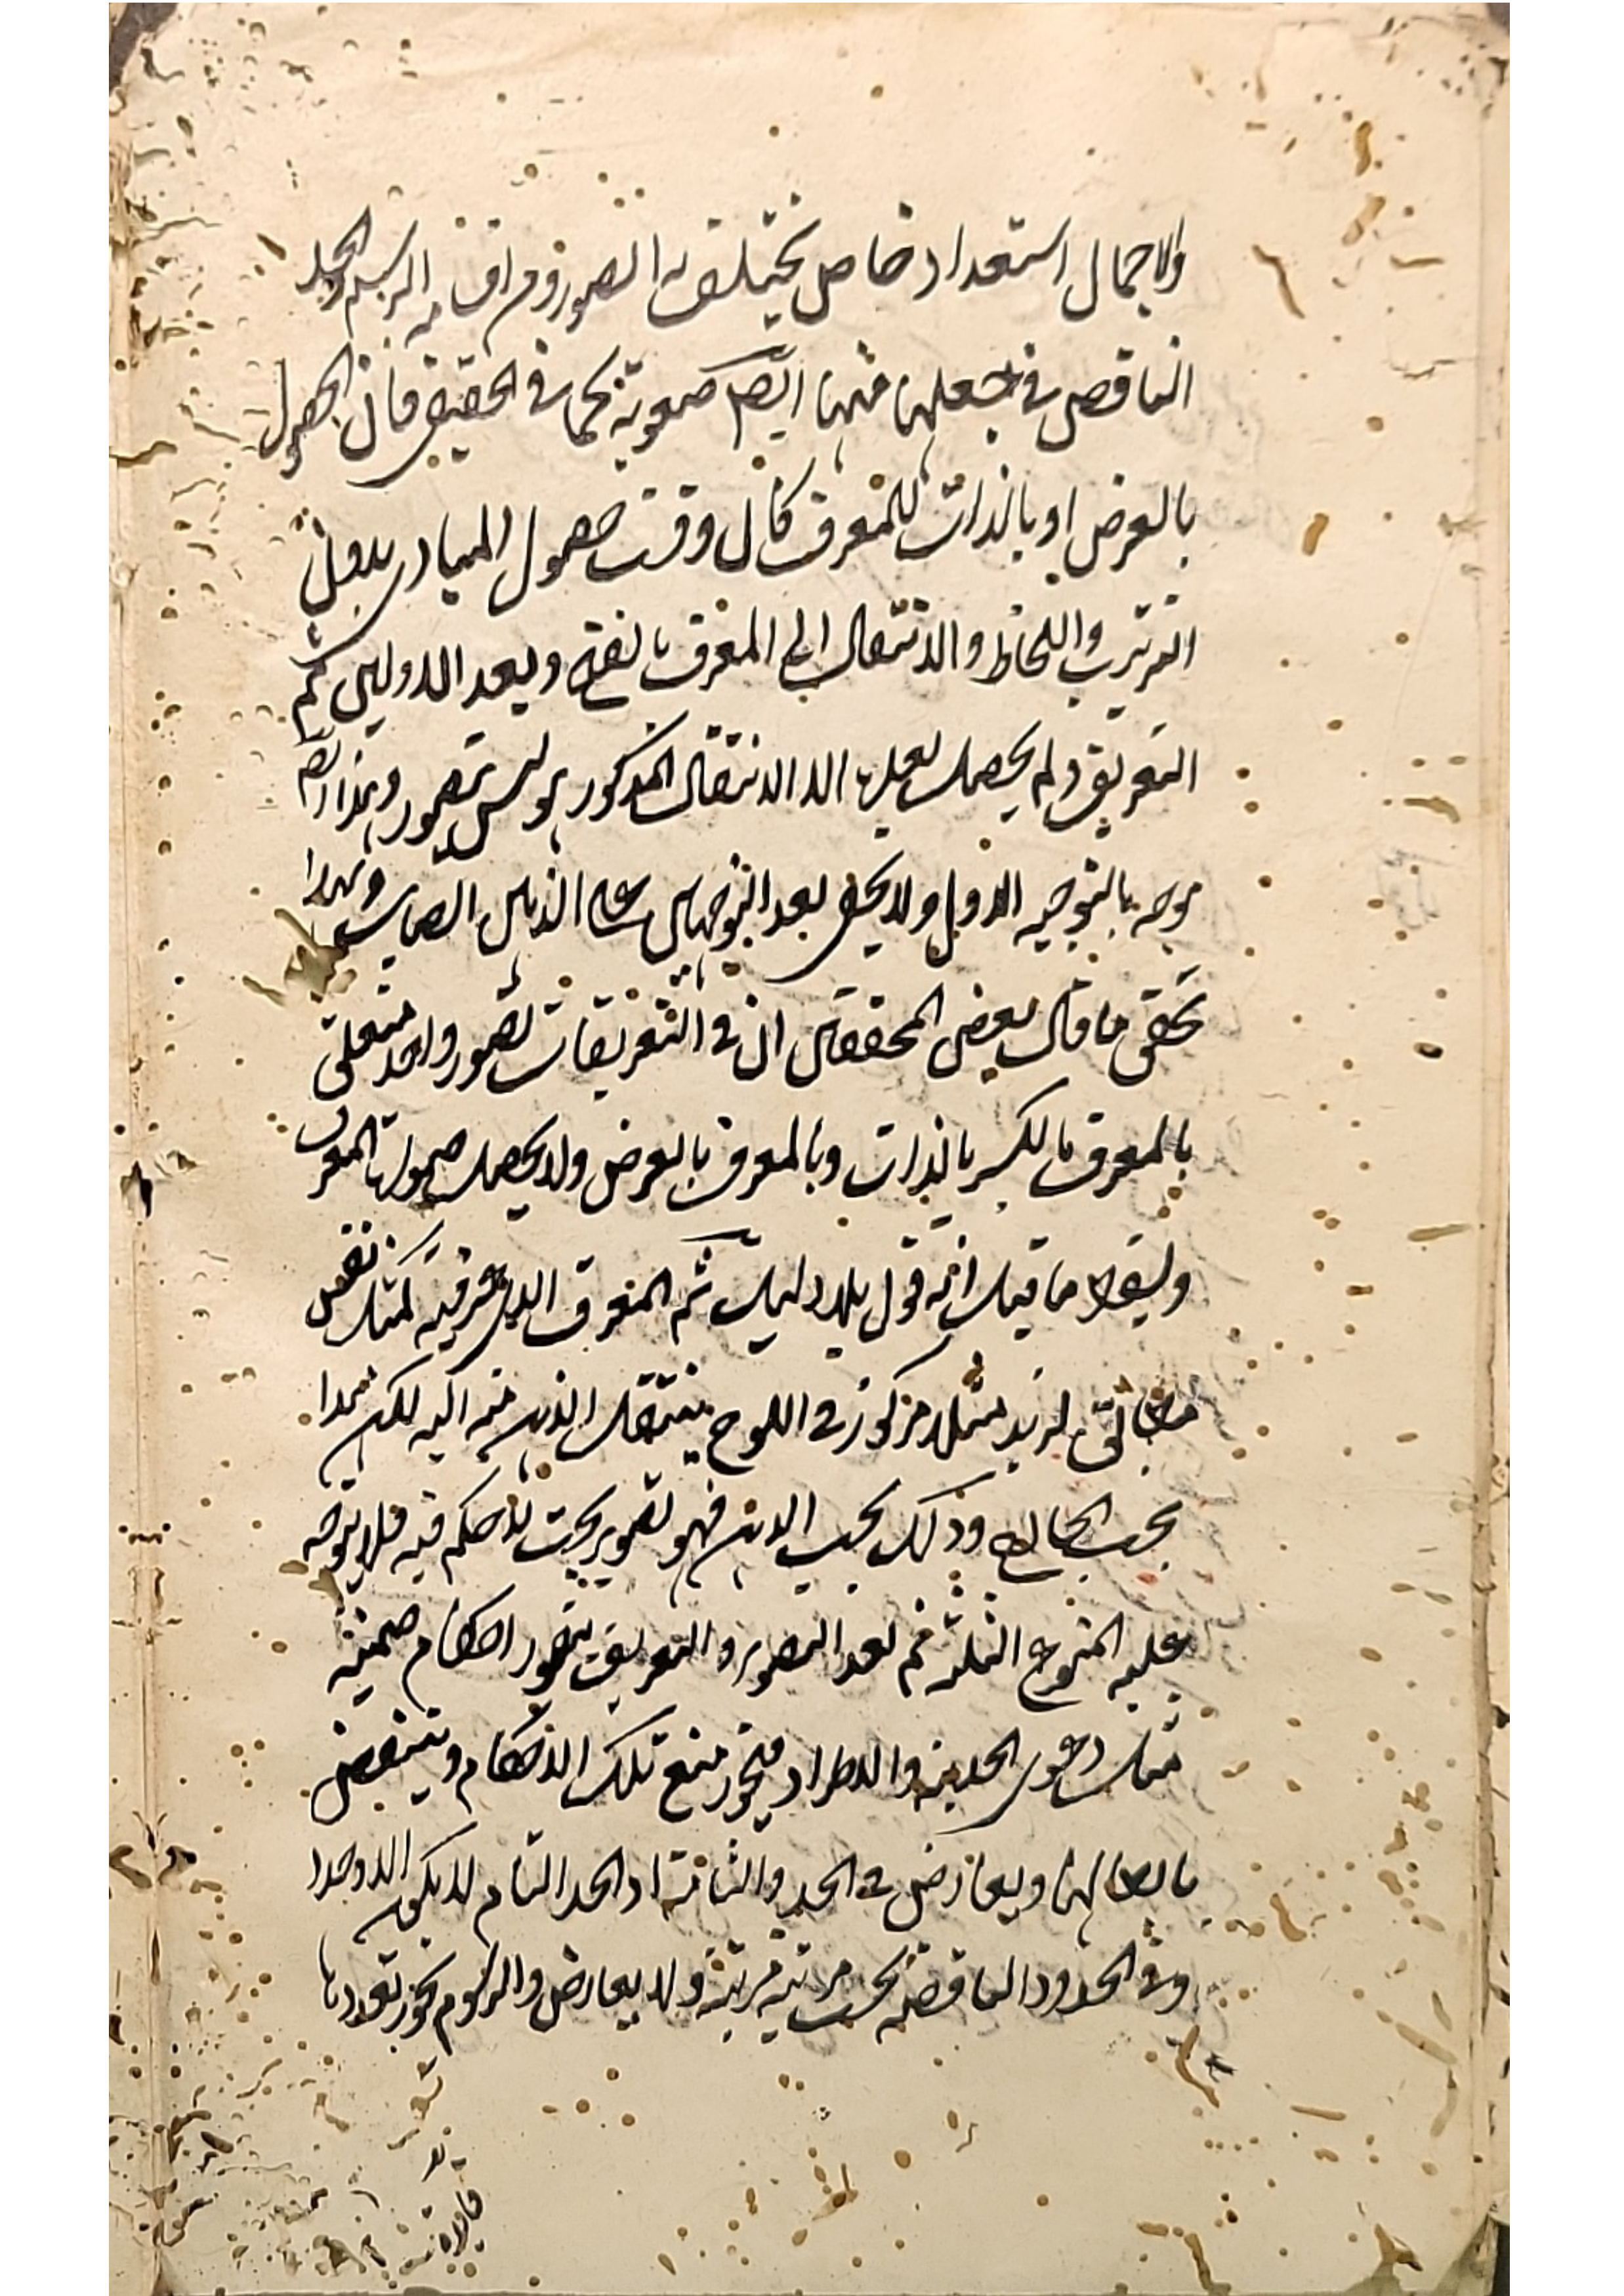 والاجمال استعداد خاص يختلف به الصور ومن اقسامه الرسم والحد
الناقص في جعلهما منها ايضا صعوبة كما في الحقيقي فان الحصول
بالعرض او بالذات للمعرف كان وقت حصول المبادي بدون
الترتيب واللحاظ والانتقال الى المعرف بالفتح وبعد الاوليين تم
التعريف ولم يحصل بعلها الا الانتقال المذكور وليس بتصور وهذا ايضا
موجه بالتوجيه الاول ولا يخفى بعد التوجهين على الذهن الصائب وبهذا
تحقق ما قال بعض المحققين ان في التعريفات تصور واحد متعلق
بالمعرف بالكسر بالذات وبالمعرف بالعرض ولا يحصل صورة المعرف
ما قيل انه قول بلا دليل ثم المعرف الذي عرفته كمثل نقش
مطابق لزيد مثلا مركوز في اللوح ينتقل الذهن منه اليه لكن هذا
بحسب الخارج وذلك بحسب الذهن فهو تصوير بحت لا حكم فيه فلا يتوجه
عليه المنوع الثلثة نعم بعد التصوير والتعريف يتصور احكام ضمنية
مثل دعوى الحدية والاطراد فيجوز منع تلك الاحكام وينتقض
بابطالها ويعارض في الحد والثانية اذ الحد التام لا يكون الا واحدا
وفي الحدود الناقصة بحسب مرتبة مرتبة ولا يعارض والرسوم يجوز تعددها